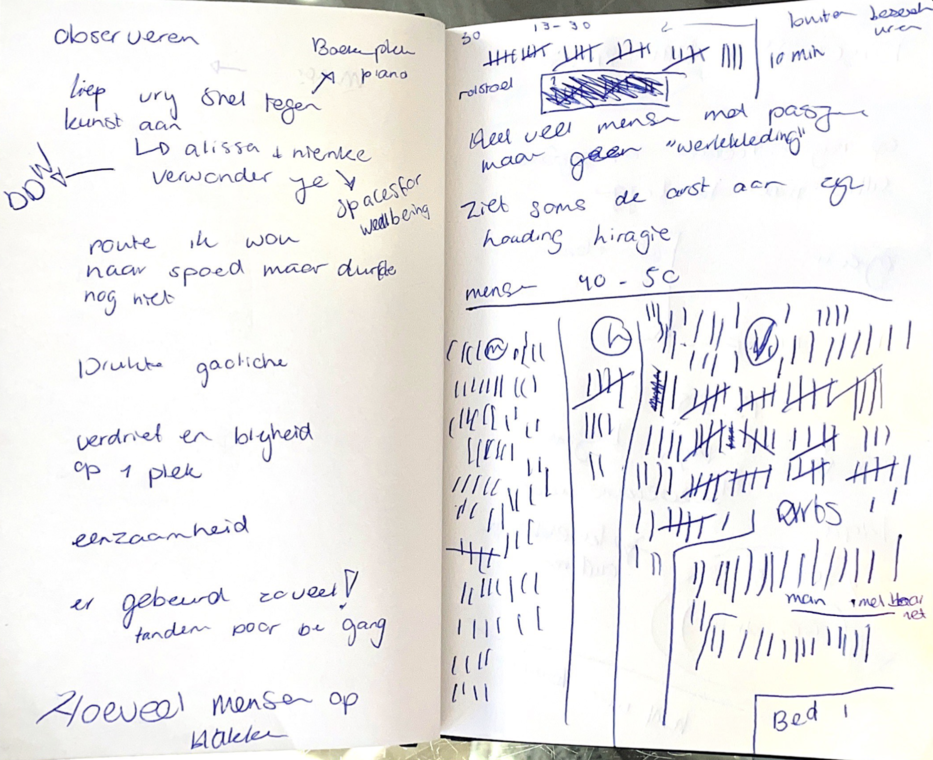 observeren
piano
liep vry snel tegen
kunst aan
alissa + nienke
verwonder je
spaces for
wellbeing
DDW
route ik wou
naar spoed maar durfde
nog niet
Drukte
verdriet en blyheid
op 1 plek
eenzaamheid
er gebeurd zoveel!
tandem door de gang
Hoeveel mensen op
hakken
30
13-30
buiten
uren
10 min
rolstoel
Heel veel mensen met pasjes
maar geen "werkkleding"
Ziet soms de arst aan zyn
houding
mensen 40 - 50
m
h
V
man
met
net
Bed 1